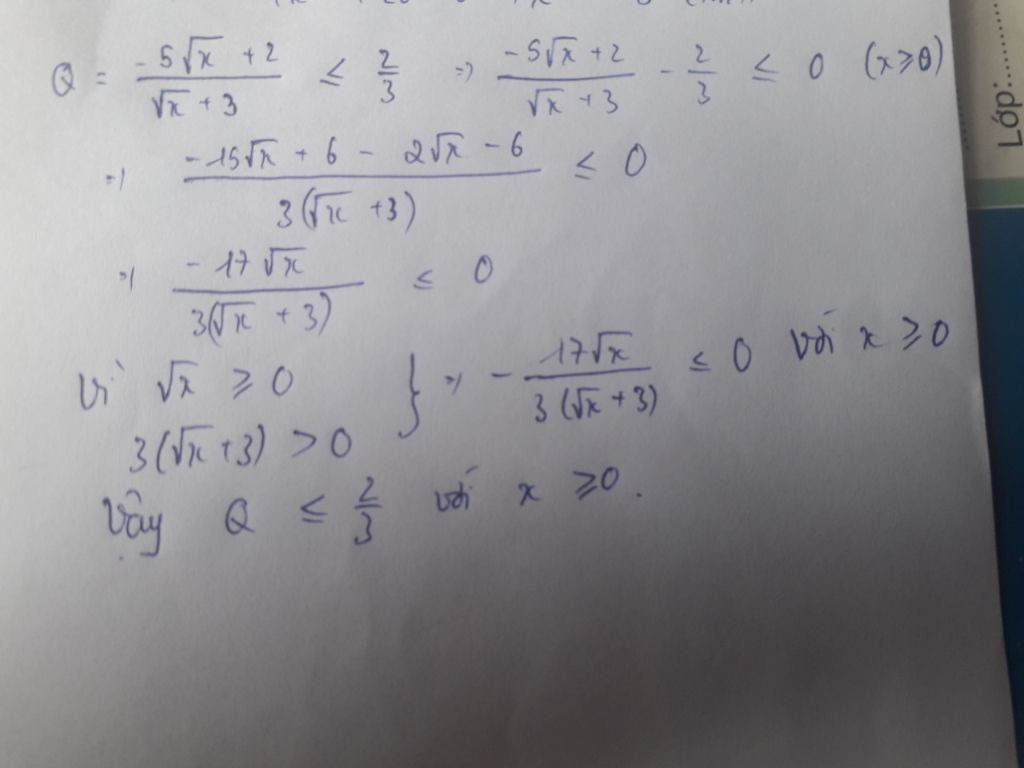 Q = \frac{-5\sqrt{x} + 2}{\sqrt{x} + 3} ≤ \frac{2}{3} => \frac{-5\sqrt{x} + 2}{\sqrt{x} + 3} - \frac{2}{3} ≤ 0 (x ≥ 0)
=> \frac{-15\sqrt{x} + 6 - 2\sqrt{x} - 6}{3(\sqrt{x} + 3)} ≤ 0
=> \frac{-17\sqrt{x}}{3(\sqrt{x} + 3)} ≤ 0
Vì \sqrt{x} ≥ 0
3(\sqrt{x} + 3) > 0 } => -\frac{17\sqrt{x}}{3(\sqrt{x} + 3)} ≤ 0 với x ≥ 0
Vậy Q ≤ \frac{2}{3} với x ≥ 0.
Lớp: